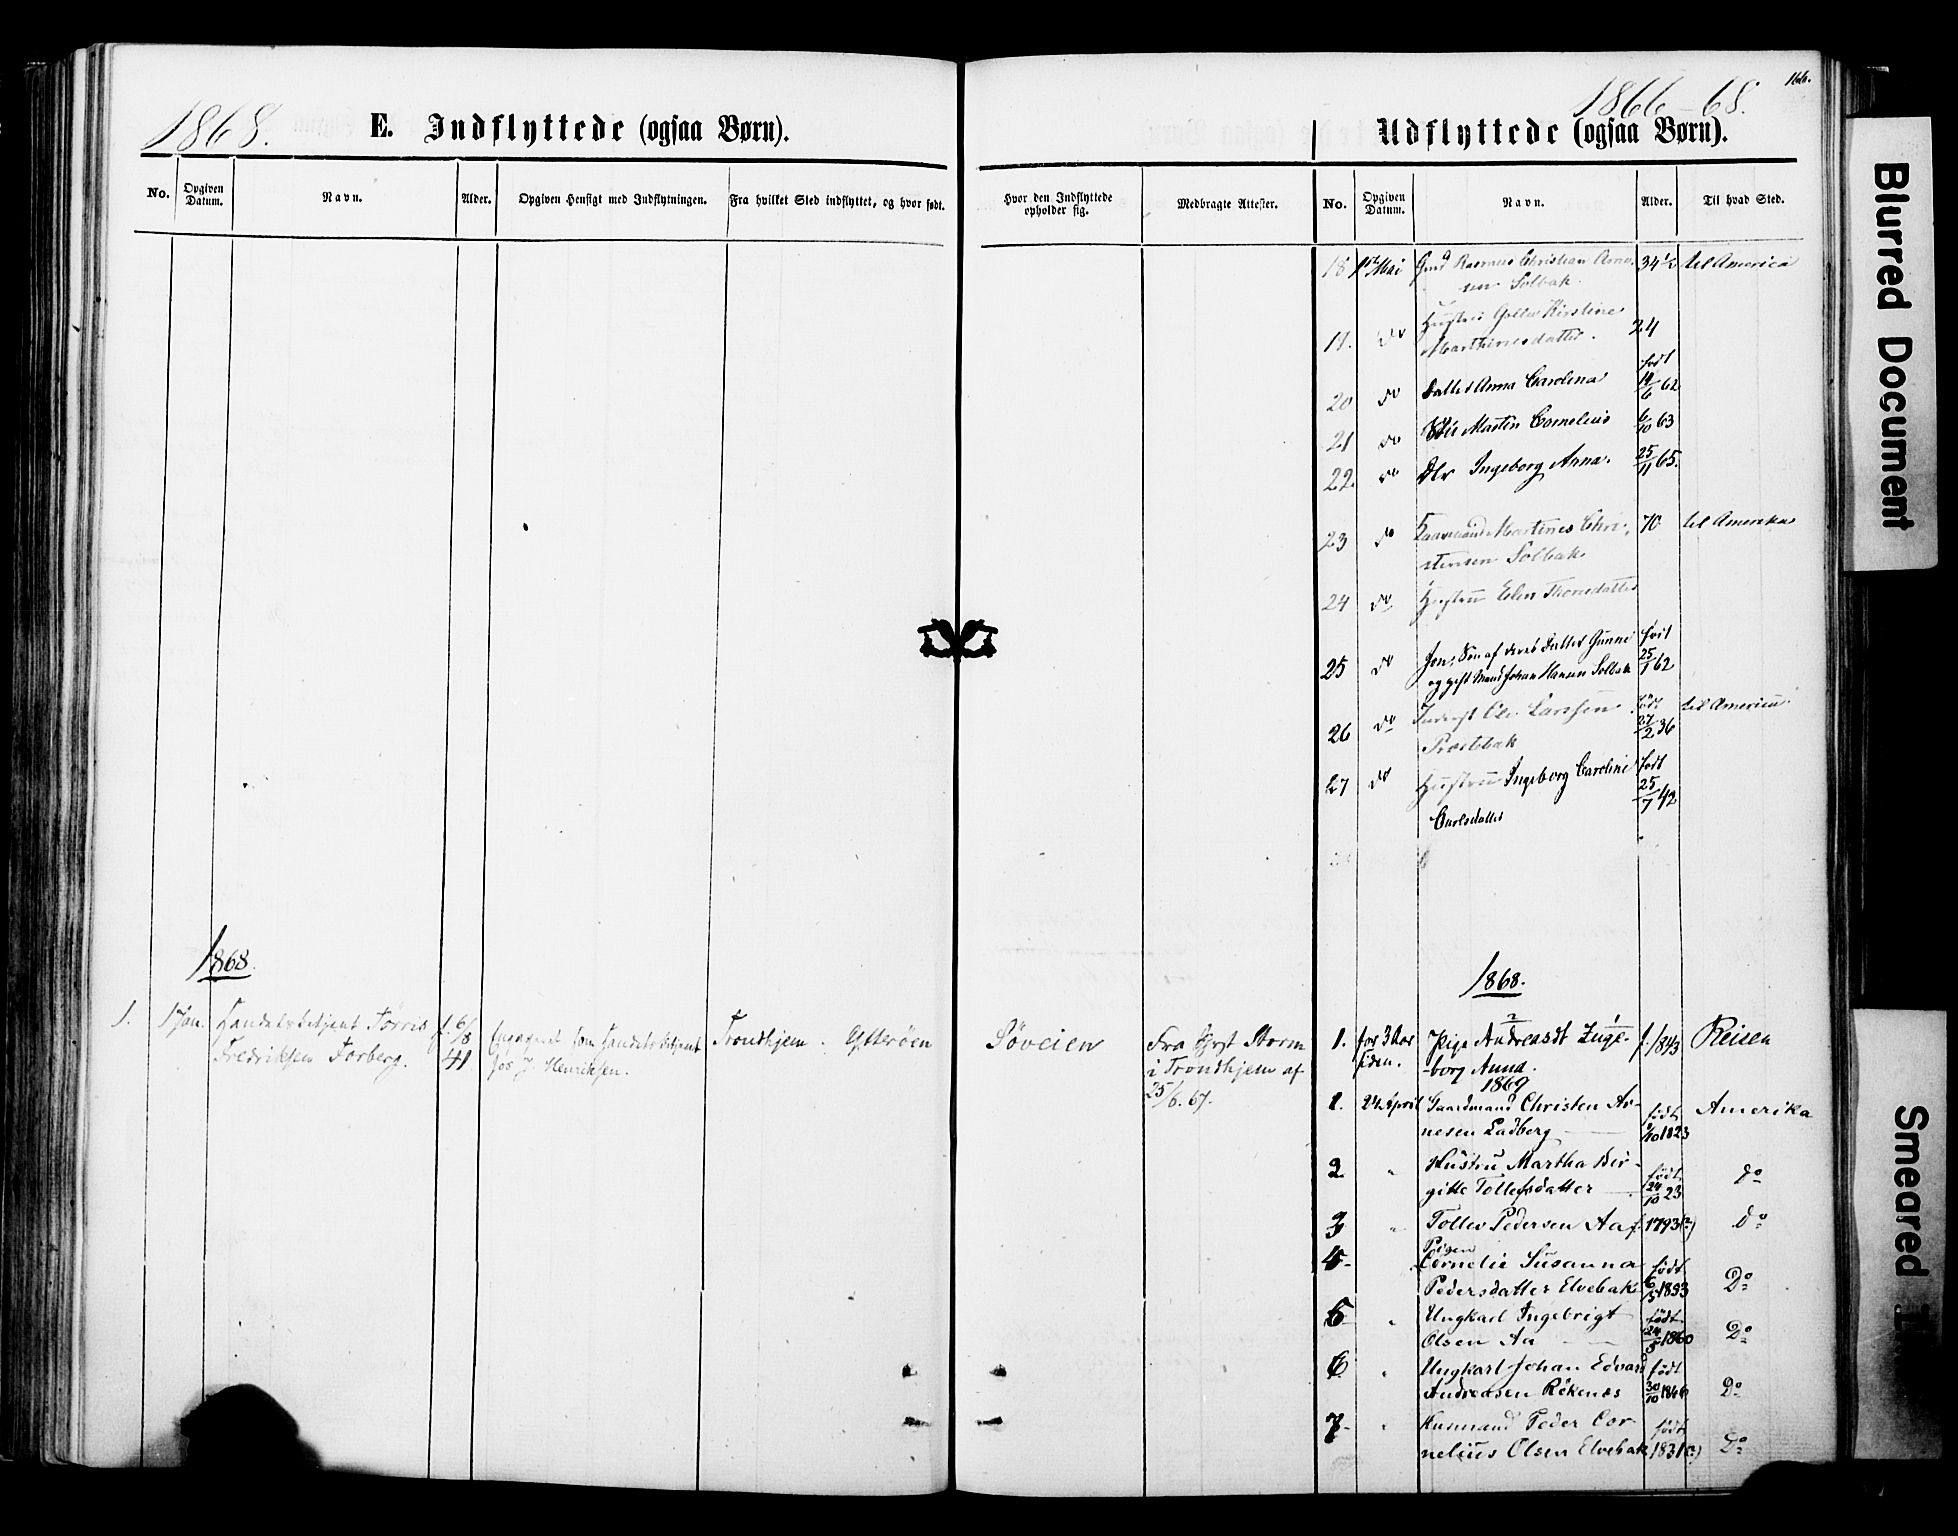 1868.
E. Indflyttede (ogsaa Børn).
No.
Opgiven Datum.
Navn.
Alder.
Opgiven Hensigt med Indflytningen.
Fra hvilket Sted indflyttet, og hvor født.
1868.
1. 1 Jan. Handelsbetjent Torris f. 6/8 Handelsbetjent Trondhjem. Ytterøen
Fredriksen Forberg. 41 hos J. Henriksen.
166.
1866-68.
Udflyttede (ogsaa Børn).
Hvor den Indflyttede opholder sig.
Medbragte Attester.
No.
Opgiven Datum.
Navn.
Alder.
Til hvad Sted.
18 Mai Rasmus Christian Arne- 34½ til America
sen Solbak.
Hustru Kirstine 24
Marthinesdatter.
født
20 do Datter Anna Carolina 14/6 62
21 do Martin Cornelius 6/10 63
22. do Dtr Ingeborg Anna. 25/11 65.
23 do Gaarmand Martines Chri- 70 til Amerika
stensen Solbak
24 do Hustru Elen Thomsdatter
25 do Jens, Søn af deres Datter Gunne født
og gift Mand Johan Hansen Solbak 25/1 62
26 do Inderst Ole Larssen født til America
Præstbak 27/2 36
27 do Hustru Ingeborg Caroline født
Carlsdatter 25/7 42
1868.
Søveien Fra Sgpst Storm
i Trondhjem af
25/6. 67.
1. for 3 Aar Pige Andreasdt Inge- f. 1843 Reisen
siden. borg Anna.
1869
1. 24 April Gaardmand Christen Ar- født Amerika
nesen Ladberg /10 1823
2 " Hustru Martha Bir- født Do
gitte Tollefsdatter 24/10 23
3 " Tollev Pedersen Aa f. 1793(?) Do
4 - Pigen
Cornelie Susanna født
Pedersdatter Elvebak 6/5 1853 Do
5 " Ungkarl Ingebrigt født
Olsen Aa 24/5 1860 Do
6 " Ungkarl Johan Edvard født
Andreasen Rökenæs 30/10 Do
7 - " Husmand Peder Cor- født
nelius Olsen Elvebak 1831(?) Do
Blurred Document
Smeared